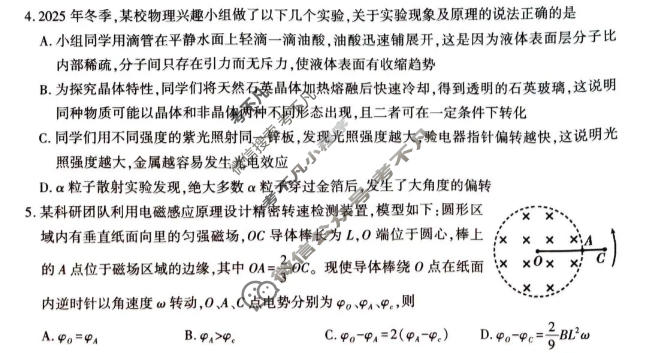 4. 2025 年冬季,某校物理兴趣小组做了以下几个实验,关于实验现象及原理的说法正确的是
A. 小组同学用滴管在平静水面上轻滴一滴油酸,油酸迅速铺展开,这是因为液体表面层分子比
内部稀疏,分子间只存在引力而无斥力,使液体表面有收缩趋势
B. 为探究晶体特性,同学们将天然石英晶体加热熔融后快速冷却,得到透明的石英玻璃,这说明
同种物质可能以晶体和非晶体两种不同形态出现,且二者可在一定条件下转化
C. 同学们用不同强度的紫光照射同一锌板,发现光照强度越大,验电器指针偏转越快,这说明光
照强度越大,金属越容易发生光电效应
D. α 粒子散射实验发现,绝大多数 α 粒子穿过金箔后,发生了大角度的偏转
5. 某科研团队利用电磁感应原理设计精密转速检测装置,模型如下:圆形区
域内有垂直纸面向里的匀强磁场,OC 导体棒长为 L,O 端位于圆心,棒上
的 A 点位于磁场区域的边缘,其中 OA=2/3 OC。现使导体棒绕 O 点在纸面
内逆时针以角速度 ω 转动,O、A、C 点电势分别为 φₒ、φ_A、φ_c,则
A. φₒ=φ_A B. φ_A>φ_c C. φₒ-φ_A=2(φ_A-φ_c) D. φₒ-φ_C=2/9 BL²ω
× ×
× × × × A
× × O × × C
× ×
微信搜索 考不凡
考不凡小程序
微信公众号:考不凡